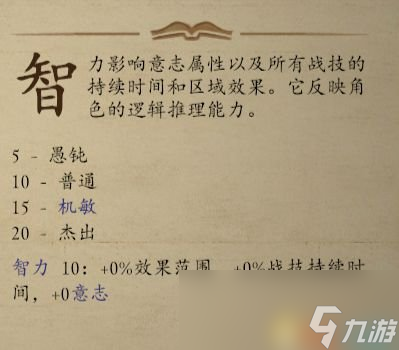 智力影响意志属性以及所有战技的
持续时间和区域效果。它反映角
色的逻辑推理能力。
5 - 愚钝
10 - 普通
15 - 机敏
20 - 杰出
智力 10：+0%效果范围，+0%战技持续时
间，+0意志
九游